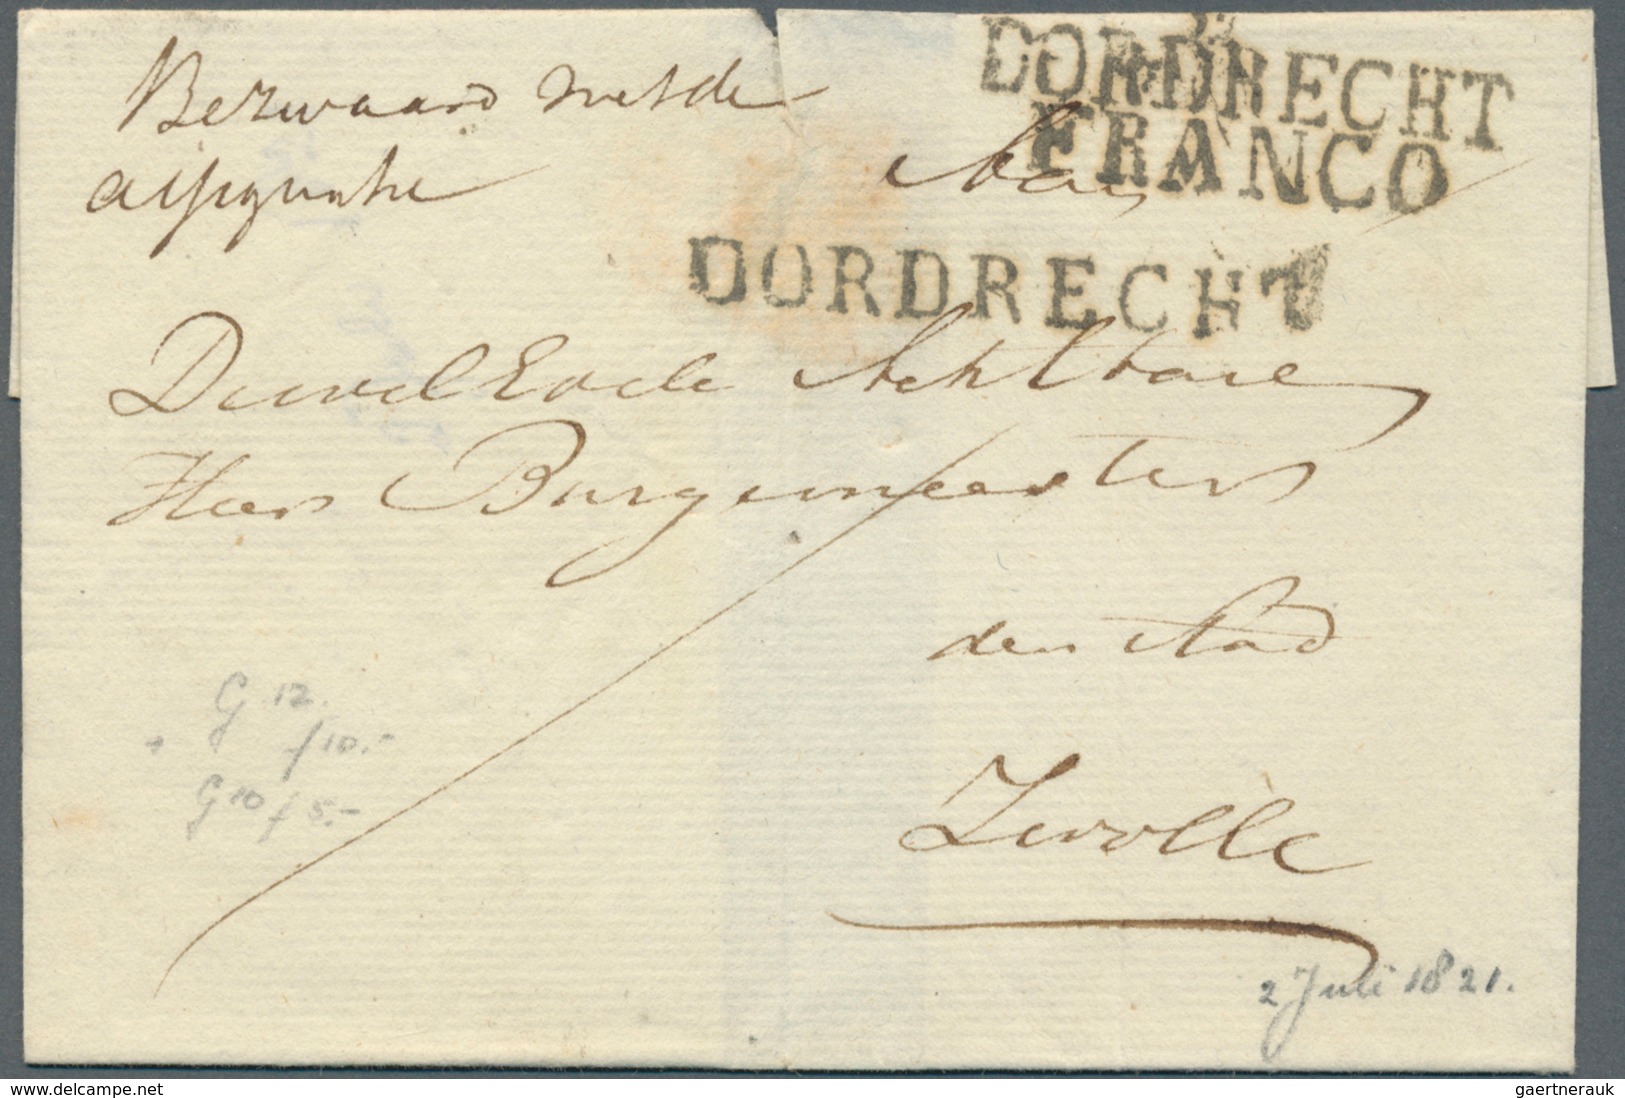 DORDRECHT
FRANCO
Bezwaard met de
Aan
DORDRECHT
Den Wel Edele Achtbare
Heer Burgemeester
der Stad
Zwolle
G 12.
+ f 10.-
G 10 f 5.-
2 Juli 1821.
delcampe.net
gaertnerauk